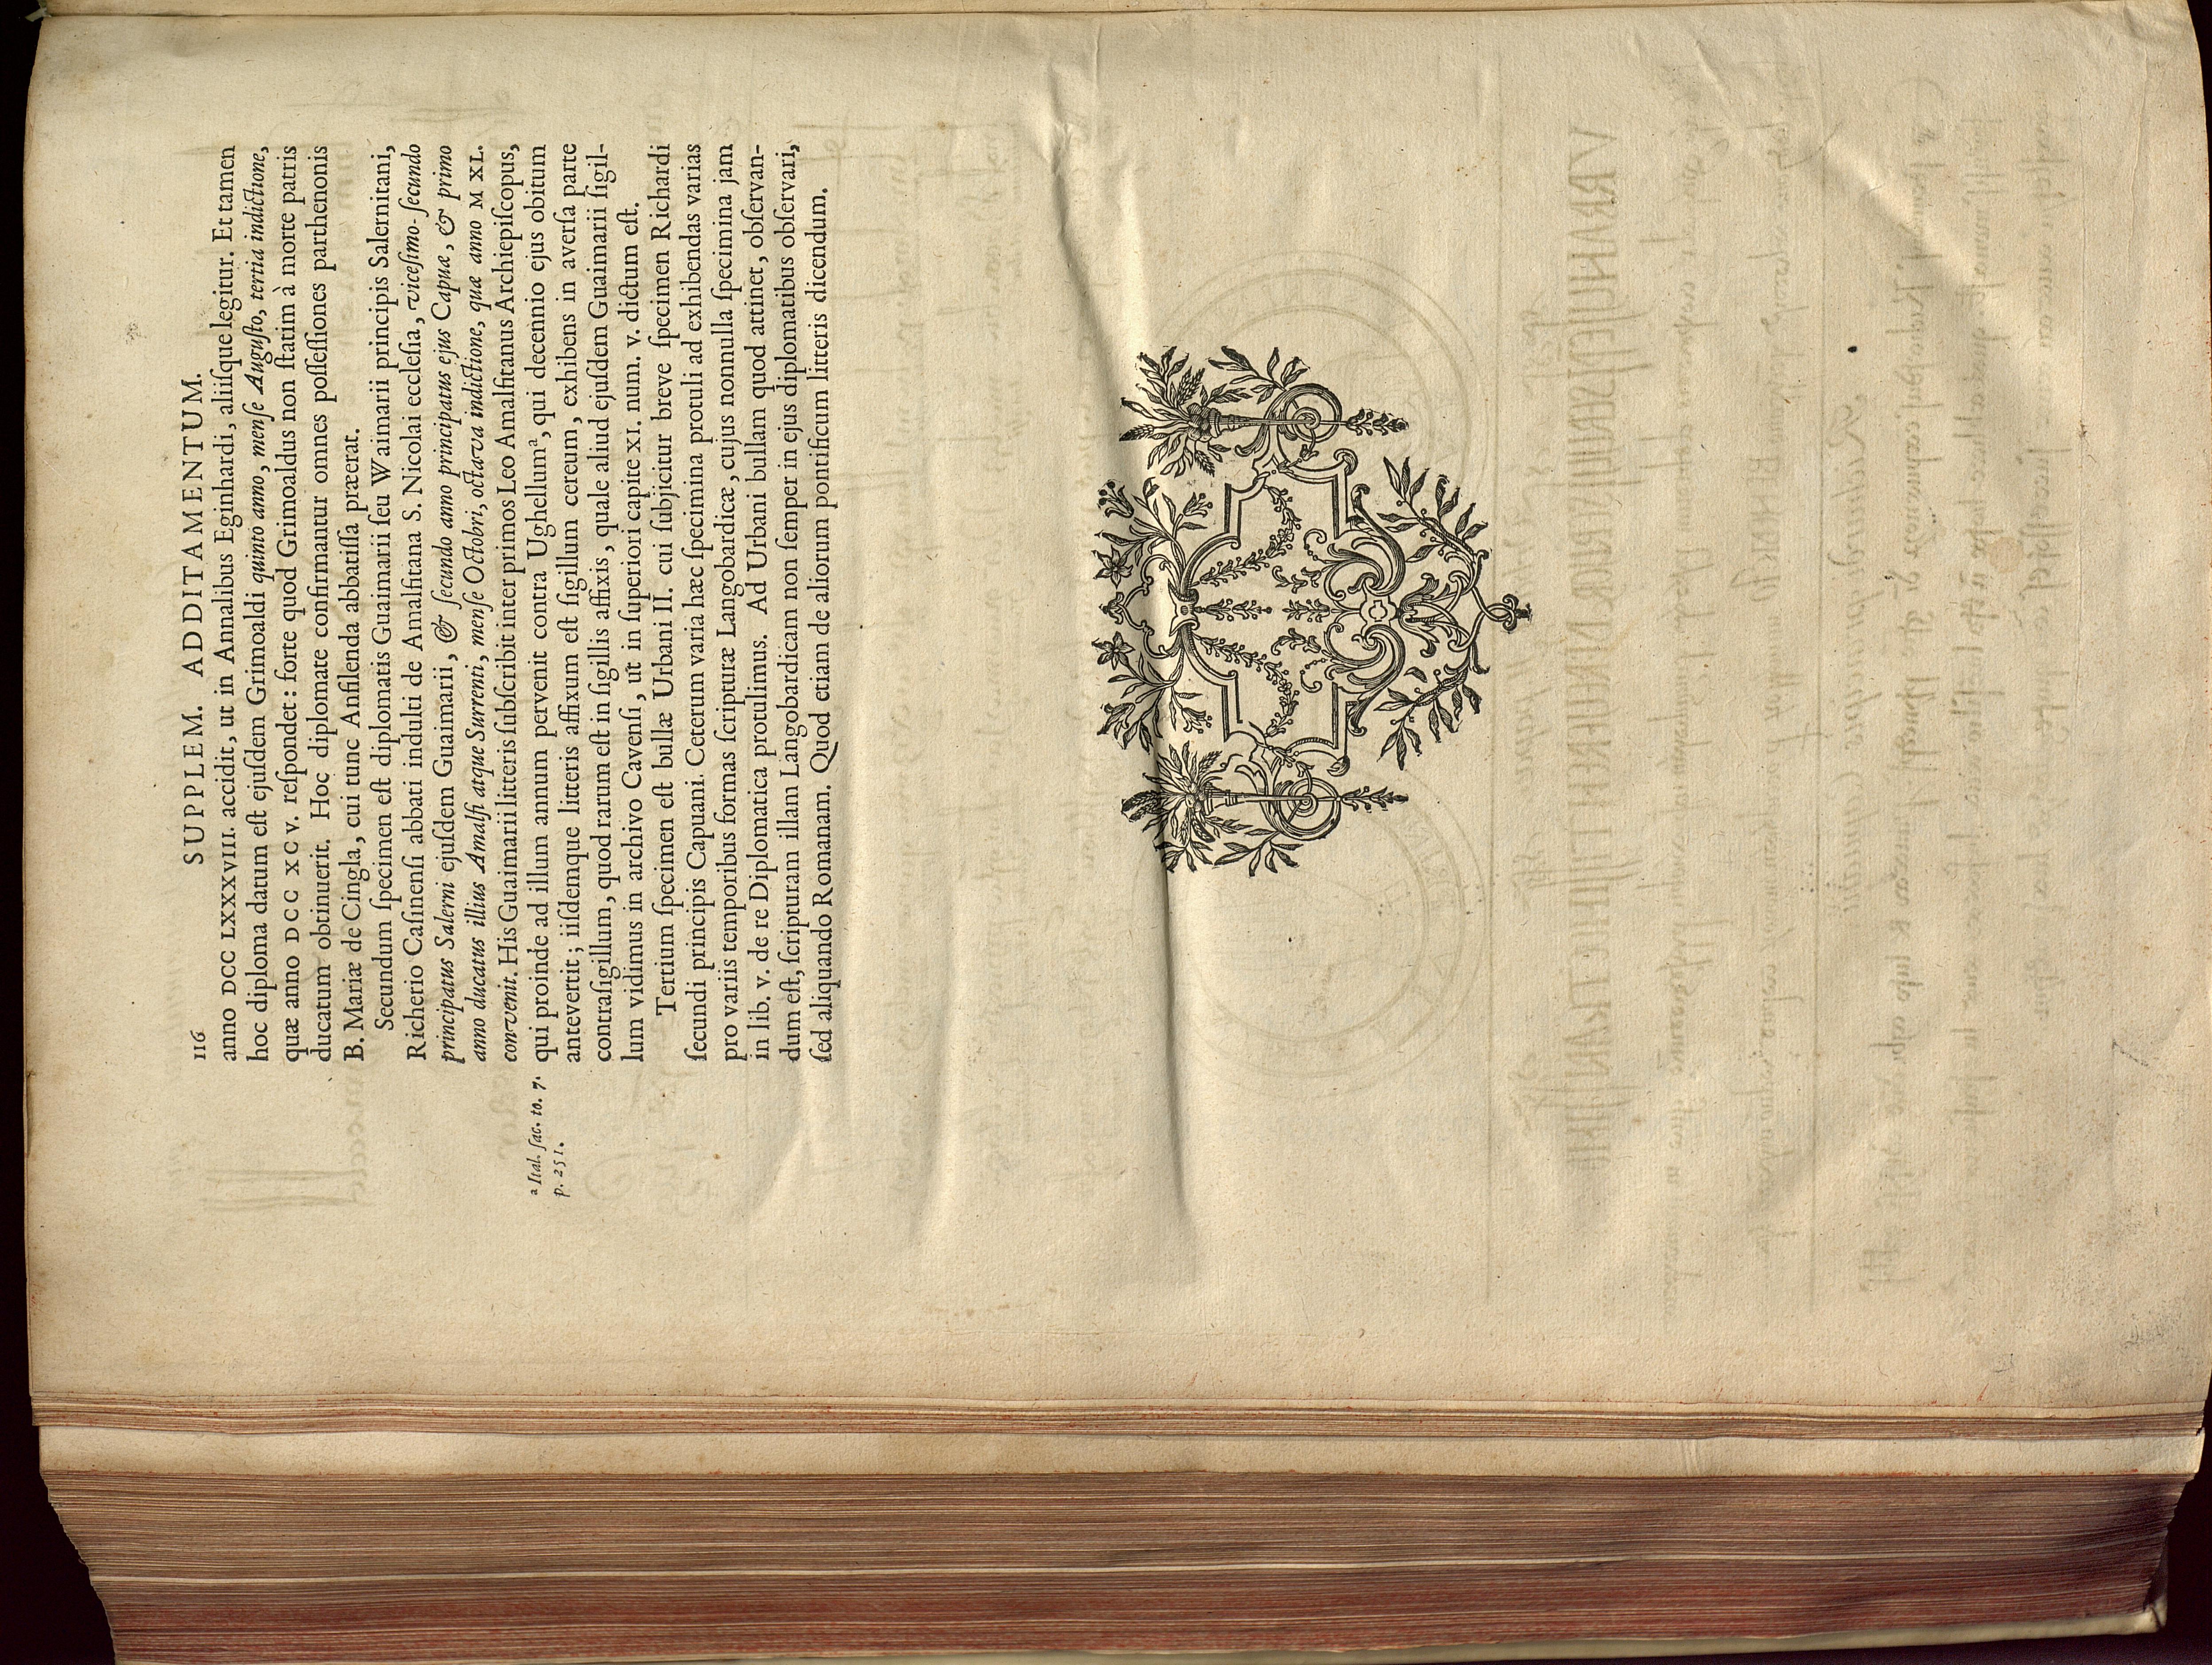 116 SUPPLEM. ADDITAMENTUM.
anno DCC LXXXVIII. accidit, ut in Annalibus Eginhardi, aliiſque legitur. Et tamen
hoc diploma datum eſt ejuſdem Grimoaldi quinto anno, menſe Auguſto, tertia indictione,
quæ anno DCC XCV. reſpondet: forte quod Grimoaldus non ſtatim à morte patris
ducatum obtinuerit. Hoc diplomate confirmantur omnes poſſeſſiones parthenonis
B. Mariæ de Cingla, cui tunc Anſilenda abbatiſſa præerat.
Secundum ſpecimen eſt diplomatis Guaimarii ſeu Waimarii principis Salernitani,
Richerio Caſinenſi abbati indulti de Amalfitana S. Nicolai eccleſia, viceſimo-ſecundo
principatus Salerni ejuſdem Guaimarii, & ſecundo anno principatus ejus Capuæ, & primo
anno ducatus illius Amalfi atque Surrenti, menſe Octobri, octava indictione, quæ anno M XL.
convenit. His Guaimarii litteris ſubſcribit inter primos Leo Amalfitanus Archiepiſcopus,
qui proinde ad illum annum pervenit contra Ughellum a, qui decennio ejus obitum
antevertit; iiſdemque litteris affixum eſt ſigillum cereum, exhibens in averſa parte
contraſigillum, quod rarum eſt in ſigillis affixis, quale aliud ejuſdem Guaimarii ſigil-
lum vidimus in archivo Cavenſi, ut in ſuperiori capite XI. num. V. dictum eſt.
Tertium ſpecimen eſt bullæ Urbani II. cui ſubjicitur breve ſpecimen Richardi
ſecundi principis Capuani. Ceterum varia hæc ſpecimina protuli ad exhibendas varias
pro variis temporibus formas ſcripturæ Langobardicæ, cujus nonnulla ſpecimina jam
in lib. V. de re Diplomatica protulimus. Ad Urbani bullam quod attinet, obſervan-
dum eſt, ſcripturam illam Langobardicam non ſemper in ejus diplomatibus obſervari,
ſed aliquando Romanam. Quod etiam de aliorum pontificum litteris dicendum.
a Ital. ſac. to. 7.
p. 251.